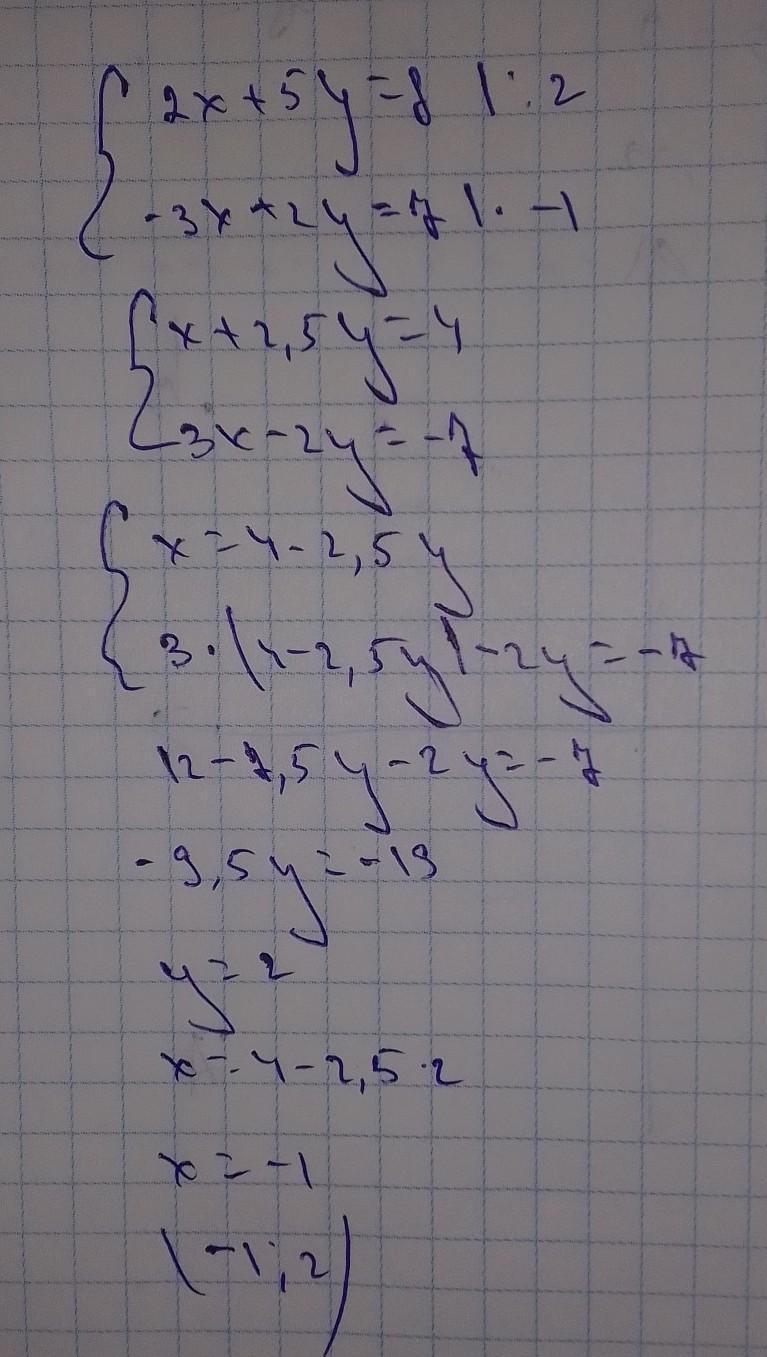 2x+5y=8 |:2
-3x+2y=7 |· -1
x+2,5y=4
3x-2y=-7
x=4-2,5y
3·(4-2,5y)-2y=-7
12-7,5y-2y=-7
-9,5y=-19
y=2
x=4-2,5·2
x=-1
(-1;2)